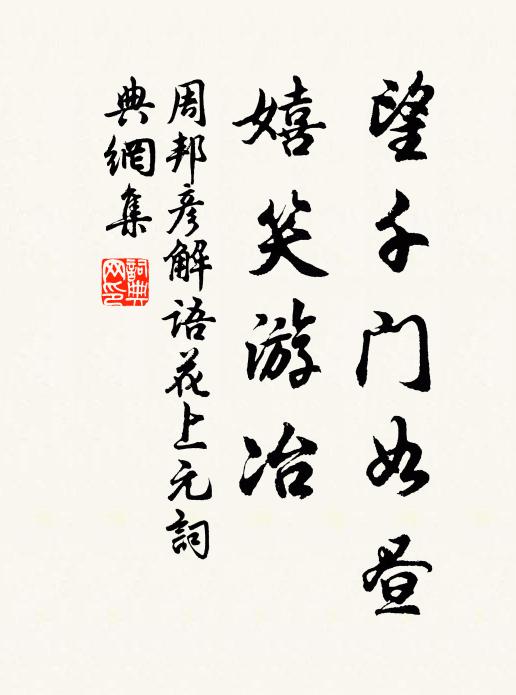 望千门如昼
嬉笑游冶
周邦彦解語花上元詞
典網集
詞典
网印